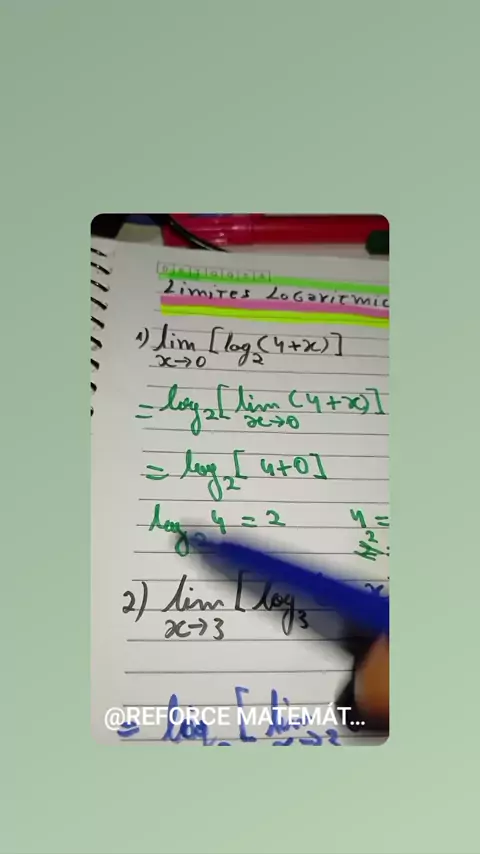 Limites Logaritmic
1) lim [log₂(4+x)]
x→0
= log₂[lim (4+x)]
x→0
= log₂[4+0]
log₂ 4 = 2 4 =
2) lim [log₃
x→3
= log [lim
@REFORCE MATEMÁT...